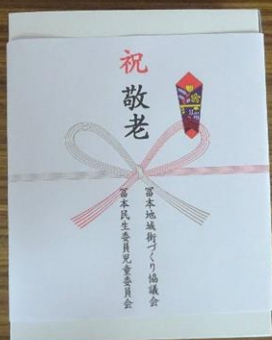 祝
敬老
冨本地域街づくり協議会
冨本民生委員児童委員会